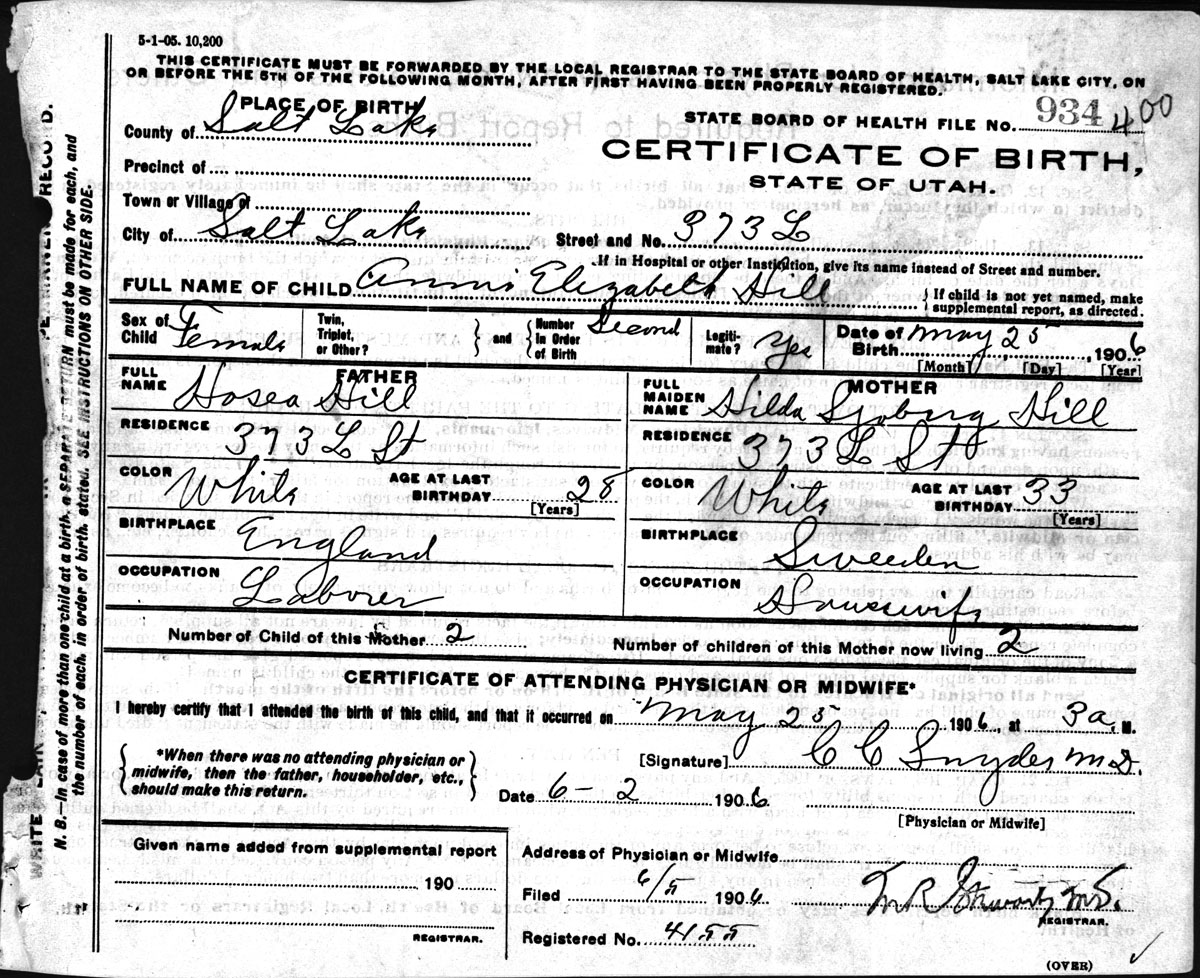 5-1-05. 10,200
THIS CERTIFICATE MUST BE FORWARDED BY THE LOCAL REGISTRAR TO THE STATE BOARD OF HEALTH, SALT LAKE CITY, ON
OR BEFORE THE 5TH OF THE FOLLOWING MONTH, AFTER FIRST HAVING BEEN PROPERLY REGISTERED.
PLACE OF BIRTH
County of Salt Lake
Precinct of
Town or Village of
City of Salt Lake
STATE BOARD OF HEALTH FILE NO. 934 400
CERTIFICATE OF BIRTH,
STATE OF UTAH.
Street and No. 373 L
If in Hospital or other Institution, give its name instead of Street and number.
FULL NAME OF CHILD Annie Elizabeth Hill
If child is not yet named, make
supplemental report, as directed.
Sex of Child Female
Twin, Triplet, or Other?
and Number in Order of Birth Second
Legiti-mate? Yes
Date of Birth May 25, 1906
[Month] [Day] [Year]
FATHER
FULL NAME Hosea Hill
RESIDENCE 373 L St
COLOR White AGE AT LAST BIRTHDAY 28
[Years]
BIRTHPLACE England
OCCUPATION Laborer
MOTHER
FULL MAIDEN NAME Hilda Sjoberg Hill
RESIDENCE 373 L St
COLOR White AGE AT LAST BIRTHDAY 33
[Years]
BIRTHPLACE Sweeden
OCCUPATION Housewife
Number of Child of this Mother 2 Number of children of this Mother now living 2
CERTIFICATE OF ATTENDING PHYSICIAN OR MIDWIFE*
I hereby certify that I attended the birth of this child, and that it occurred on May 25 1906, at 3 a. M.
*When there was no attending physician or
midwife, then the father, householder, etc.,
should make this return.
[Signature] C C Snyder M.D.
Date 6-2 1906
[Physician or Midwife]
Given name added from supplemental report
190
REGISTRAR.
Address of Physician or Midwife
Filed 6/5 1906
REGISTRAR.
Registered No. 4155
(OVER)
N. B.—In case of more than one child at a birth, a SEPARATE RETURN must be made for each, and
the number of each, in order of birth, stated. SEE INSTRUCTIONS ON OTHER SIDE.